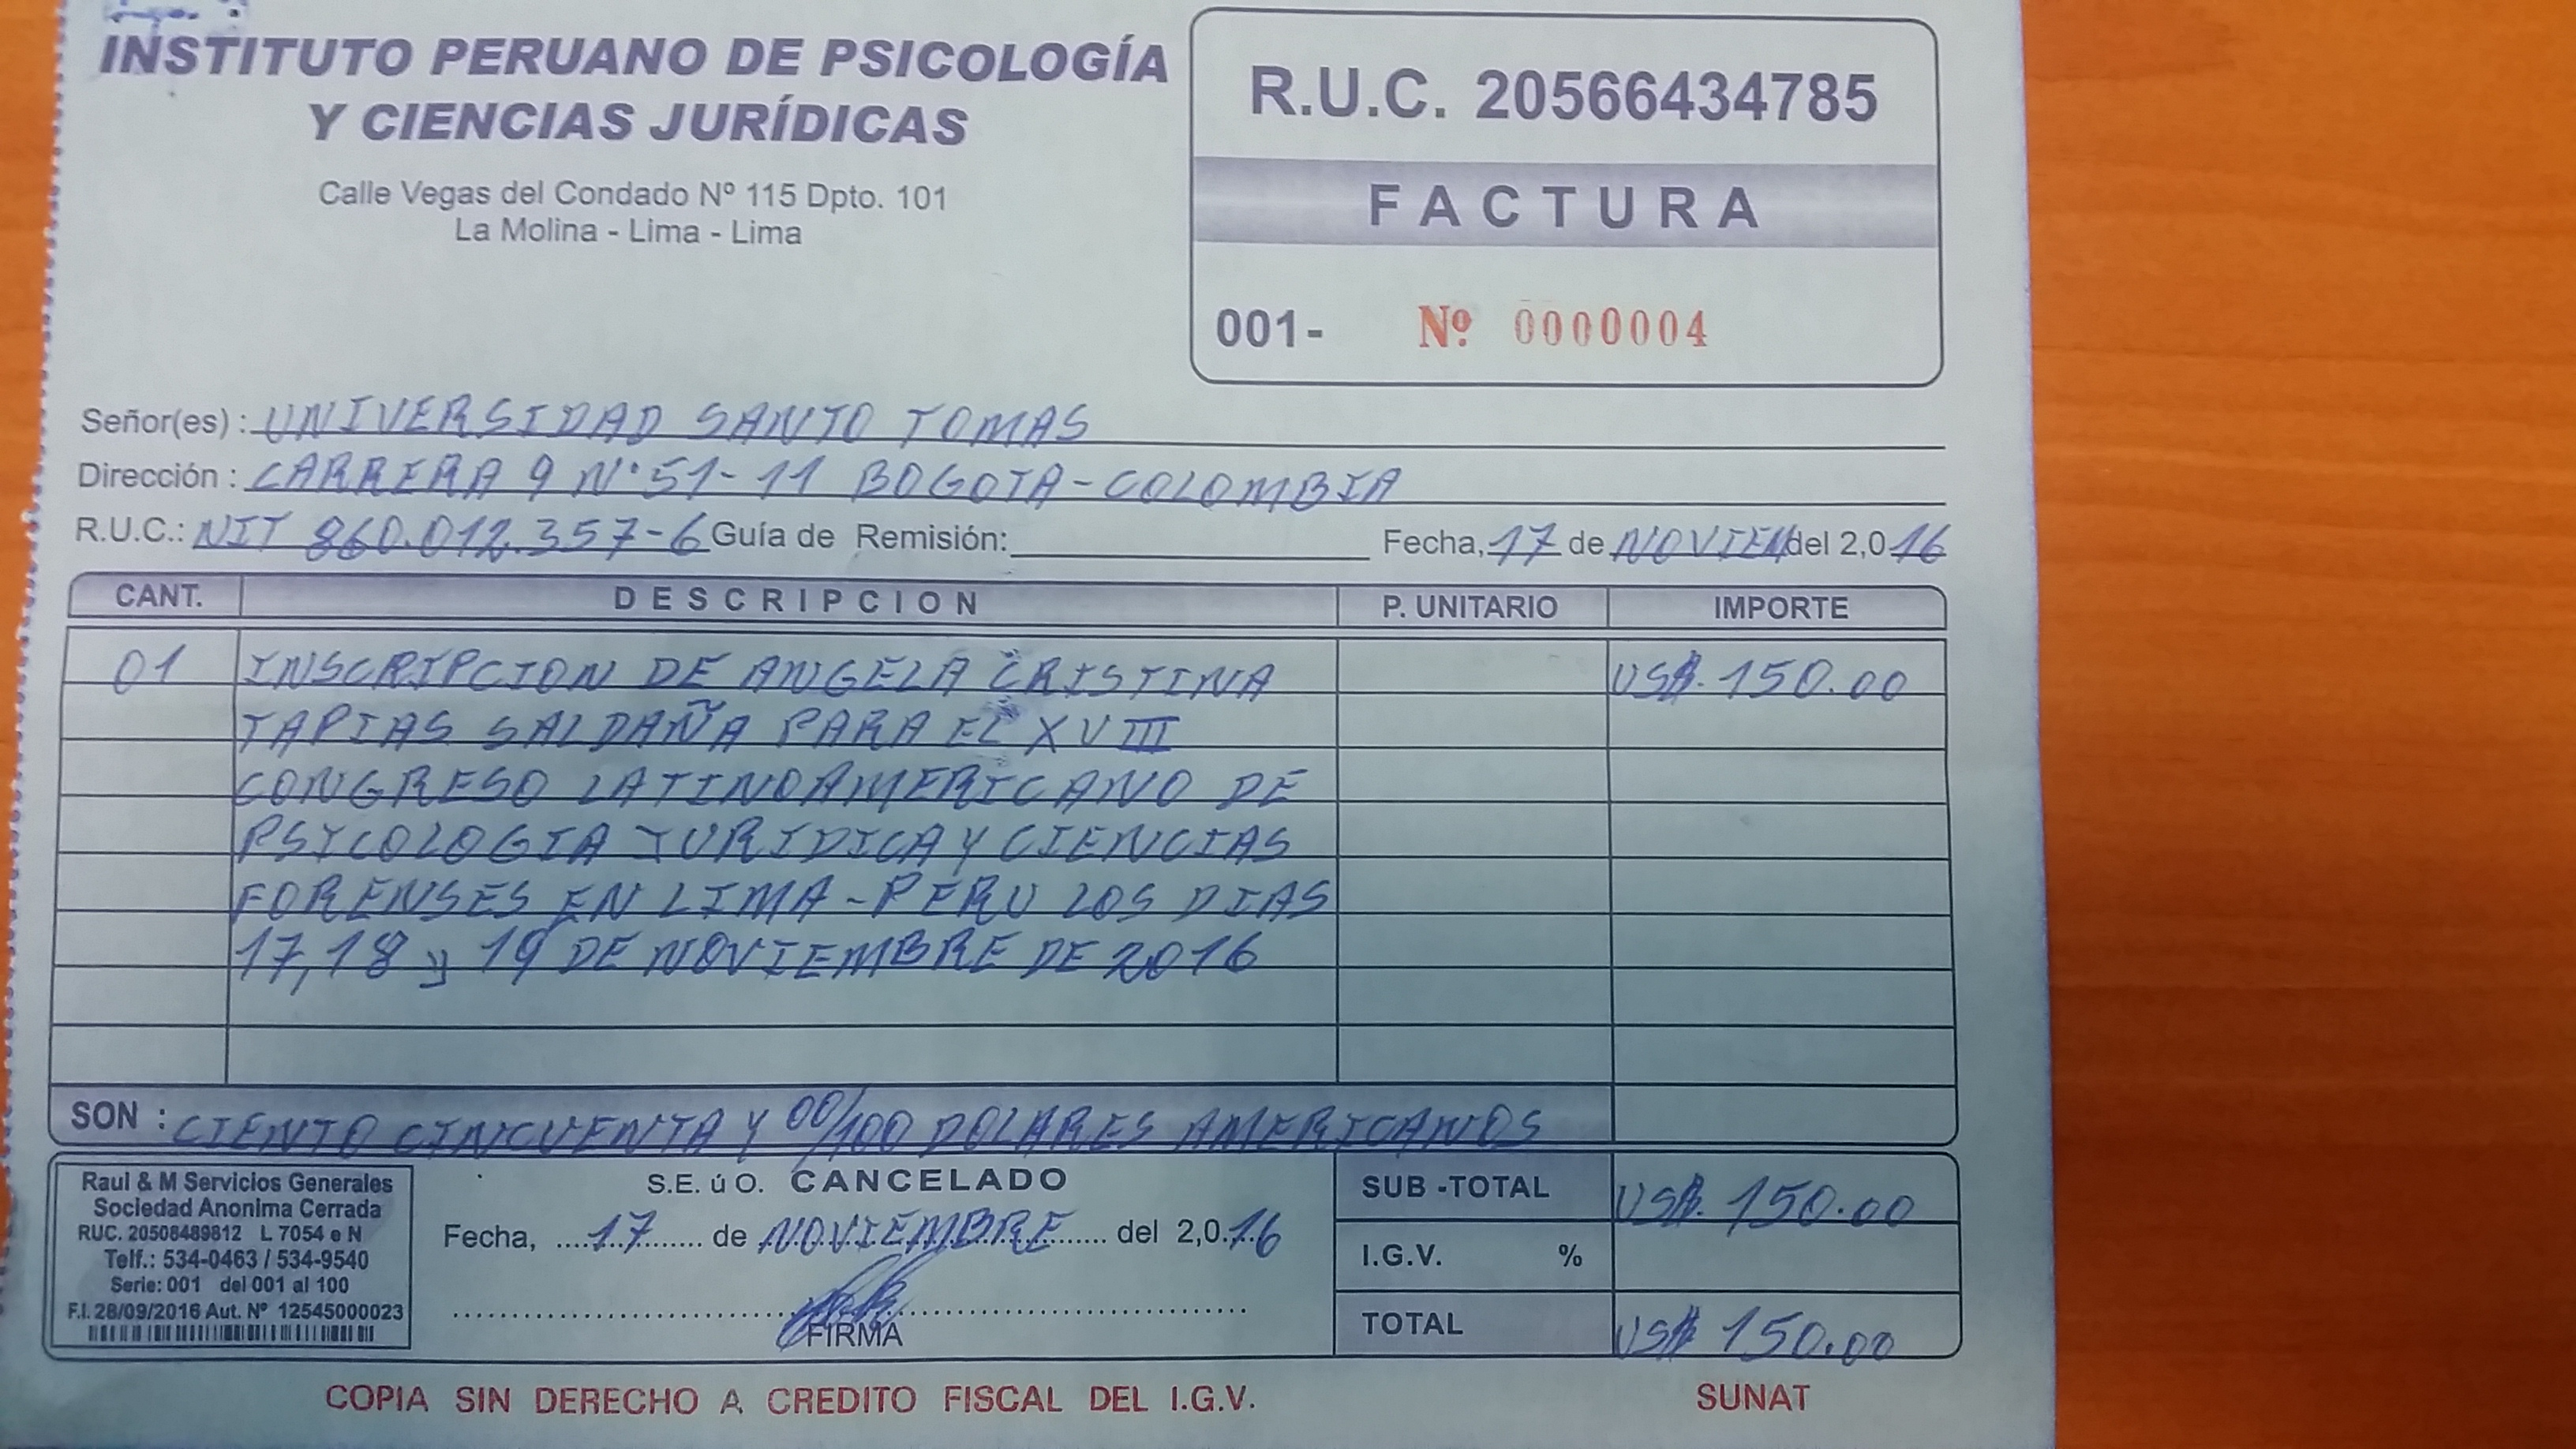 INSTITUTO PERUANO DE PSICOLOGÍA
Y CIENCIAS JURÍDICAS
Calle Vegas del Condado Nº 115 Dpto. 101
La Molina - Lima - Lima
R.U.C. 20566434785
FACTURA
001- Nº 0000004
Señor(es) : UNIVERSIDAD SANTO TOMAS
Dirección : CARRERA 9 Nº 51-11 BOGOTA-COLOMBIA
R.U.C.: NIT 860.012.357-6 Guía de Remisión: Fecha, 17 de NOVIEM del 2,016
CANT. DESCRIPCION P. UNITARIO IMPORTE
01 INSCRIPCION DE ANGELA CRISTINA US$. 150.00
TAPIAS SALDAÑA PARA EL XVIII
CONGRESO LATINOAMERICANO DE
PSICOLOGIA JURIDICA Y CIENCIAS
FORENSES EN LIMA-PERU LOS DIAS
17, 18 y 19 DE NOVIEMBRE DE 2016
SON : CIENTO CINCUENTA Y 00/100 DOLARES AMERICANOS
Raul & M Servicios Generales
Sociedad Anonima Cerrada
RUC. 20508489812 L 7054 e N
Telf.: 534-0463 / 534-9540
Serie: 001 del 001 al 100
F.I. 28/09/2016 Aut. Nº 12545000023
S.E. ú O. CANCELADO
Fecha, 17 de NOVIEMBRE del 2,016
FIRMA
SUB -TOTAL US$. 150.00
I.G.V. %
TOTAL US$ 150.00
COPIA SIN DERECHO A CREDITO FISCAL DEL I.G.V. SUNAT